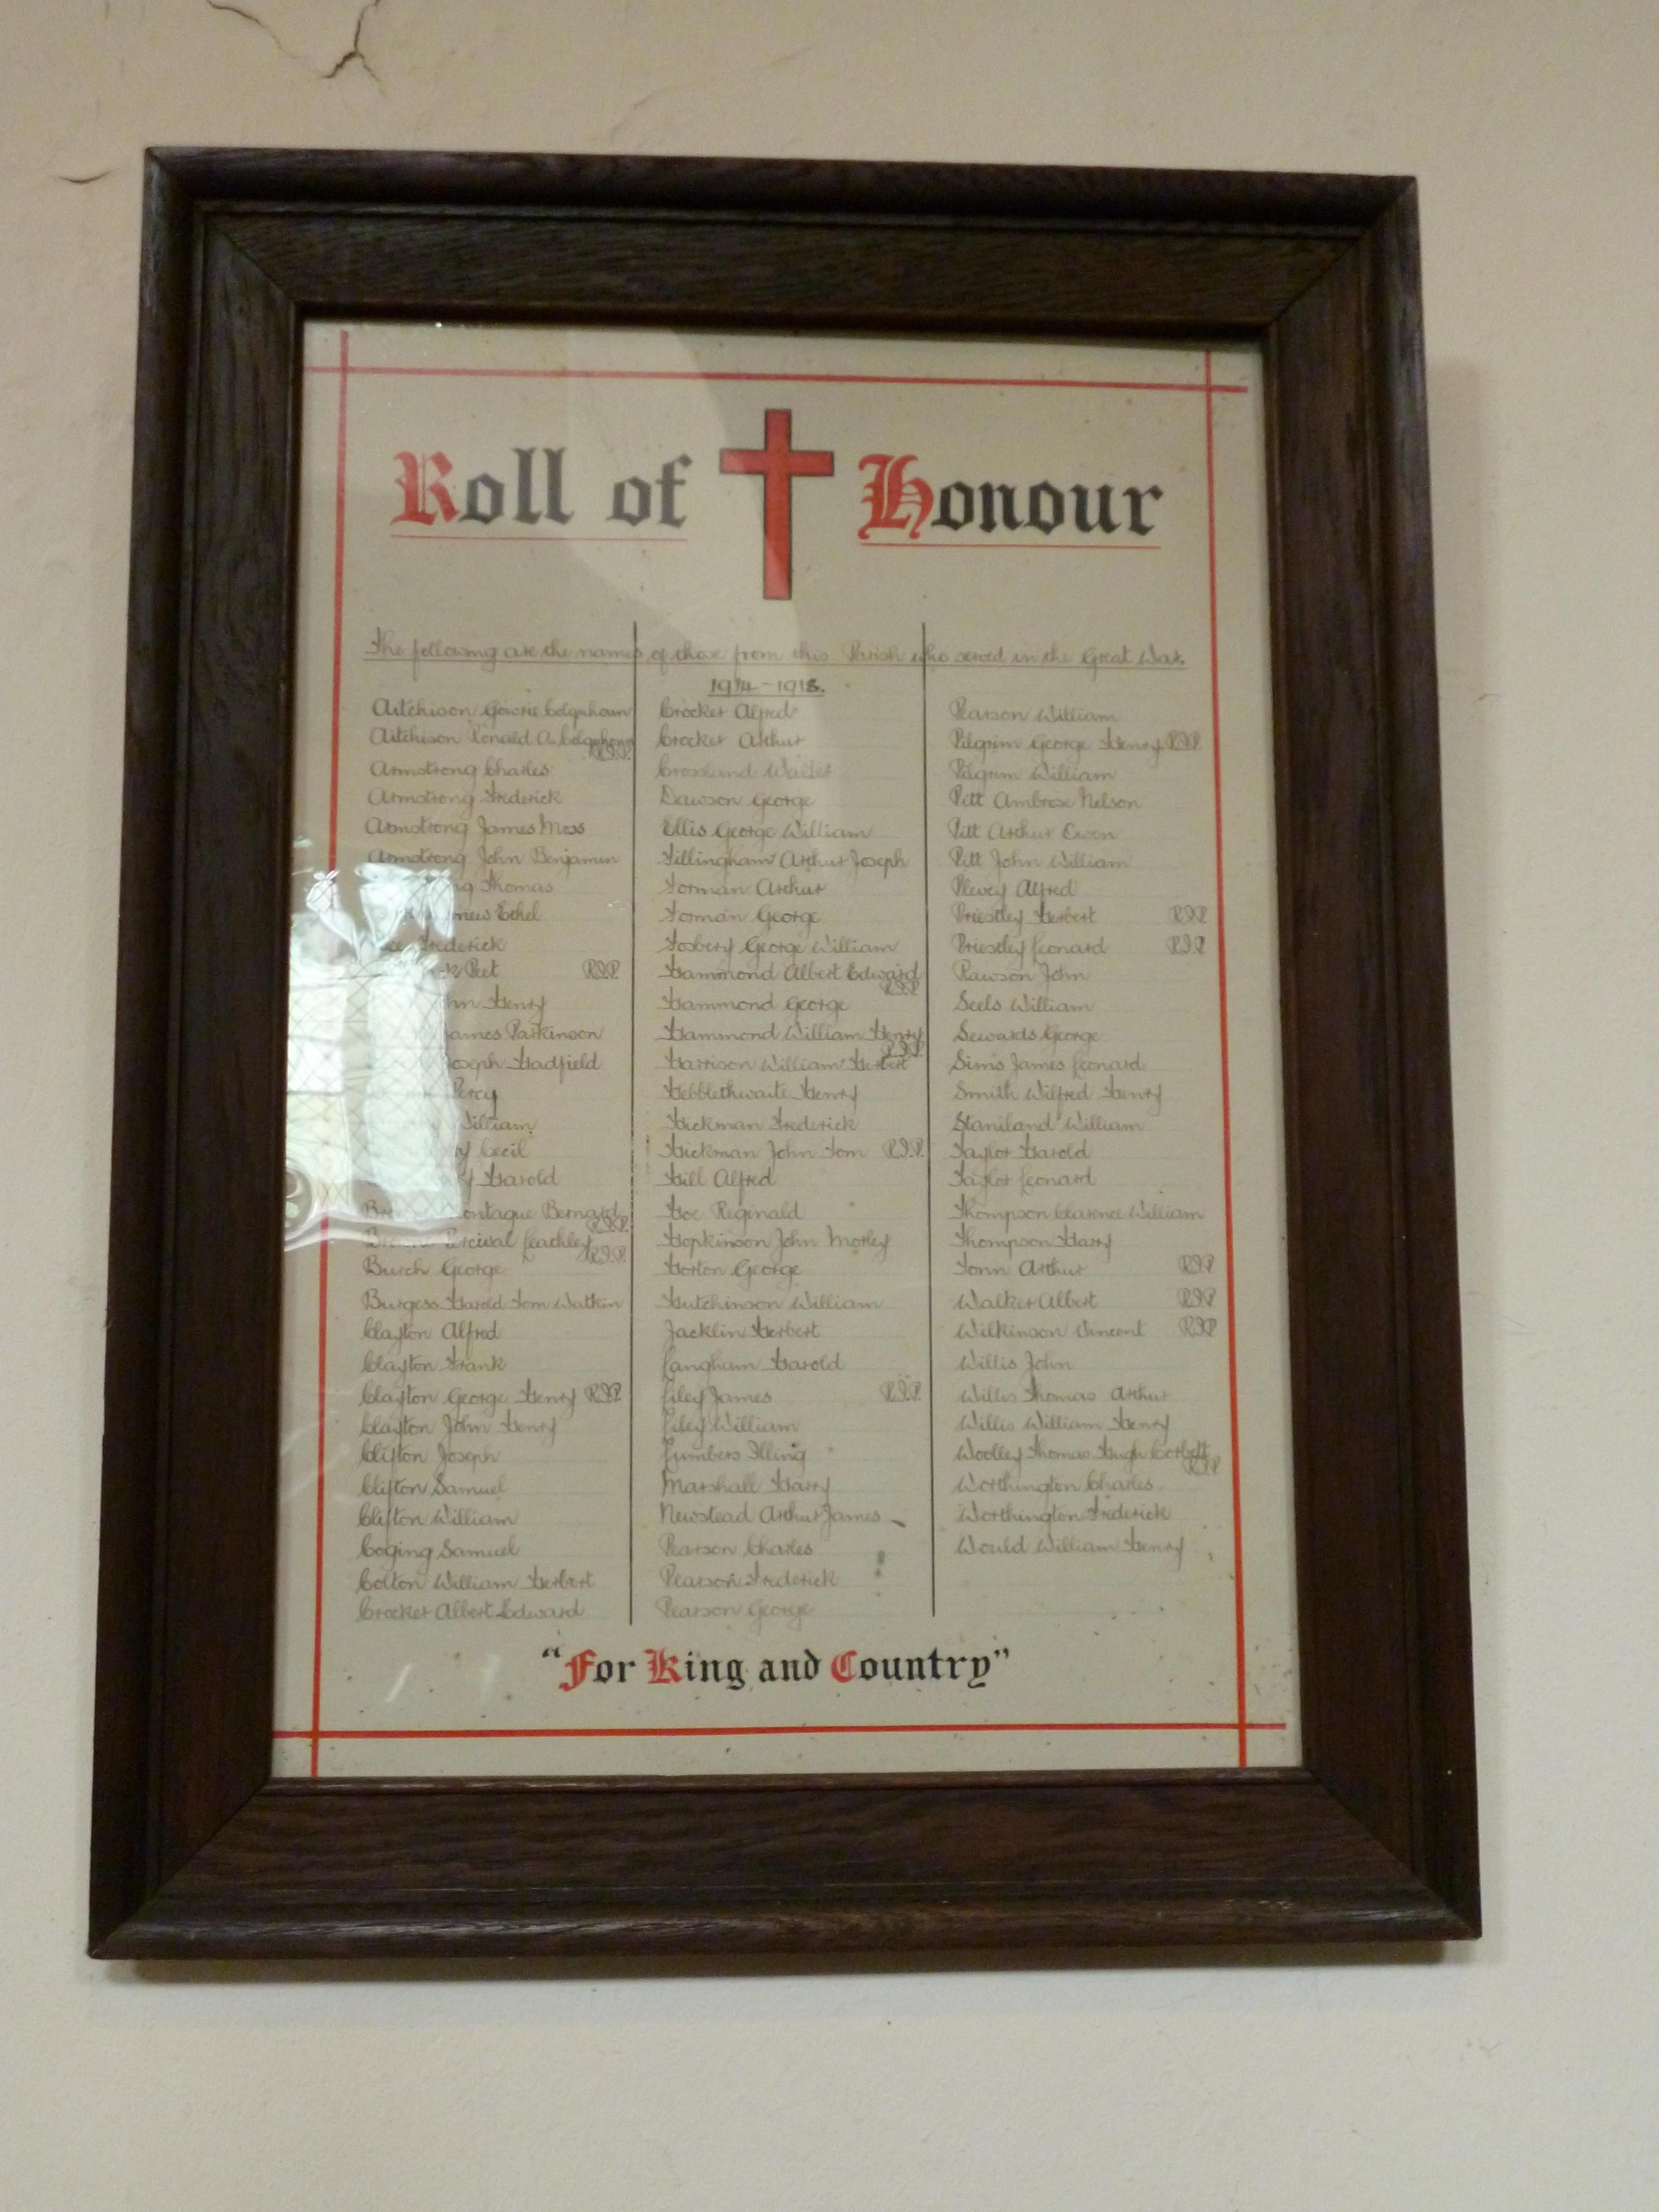 Roll of Honour
The following are the names of those from this Parish who served in the Great War.
1914-1918.
Aitchison Gowrie Colquhoun
Aitchison Ronald A. Colquhoun
R.I.P.
Armstrong Charles
Armstrong Frederick
Armstrong James Moss
Armstrong John Benjamin
Thomas
Ethel
Frederick
R.I.P.
Henry
James Parkinson
Joseph Hadfield
Percy
William
Cecil
Harold
Montague Bernard
R.I.P.
Percival Leathley
R.I.P.
Burch George
Burgess Harold Tom Watkin
Clayton Alfred
Clayton Frank
Clayton George Henry R.I.P.
Clayton John Henry
Clifton Joseph
Clifton Samuel
Clifton William
Coging Samuel
Colton William Herbert
Crocker Albert Edward
Crocker Alfred
Crocker Arthur
Crossland Walter
Dawson George
Ellis George William
Fillingham Arthur Joseph
Forman Arthur
Forman George
Fosbery George William
Hammond Albert Edward
R.I.P.
Hammond George
Hammond William Henry
R.I.P.
Harrison William Herbert
Hebblethwaite Henry
Hickman Frederick
Hickman John Tom R.I.P.
Hill Alfred
Hoe Reginald
Hopkinson John Morley
Horton George
Hutchinson William
Jacklin Herbert
Langham Harold
Liley James R.I.P.
Liley William
Lumbers Illing
Marshall Harry
Newstead Arthur James
Pearson Charles
Pearson Frederick
Pearson George
Pearson William
Pilgrim George Henry R.I.P.
Pilgrim William
Pitt Ambrose Nelson
Pitt Arthur Owen
Pitt John William
Plevey Alfred
Priestley Herbert R.I.P.
Priestley Leonard R.I.P.
Rawson John
Seels William
Sewards George
Sims James Leonard
Smith Wilfred Henry
Staniland William
Taylor Harold
Taylor Leonard
Thompson Clarence William
Thompson Harry
Tonn Arthur R.I.P.
Walker Albert R.I.P.
Wilkinson Vincent R.I.P.
Willis John
Willis Thomas Arthur
Willis William Henry
Woolley Thomas Hugh Corbett
R.I.P.
Worthington Charles
Worthington Frederick
Would William Henry
"For King and Country"